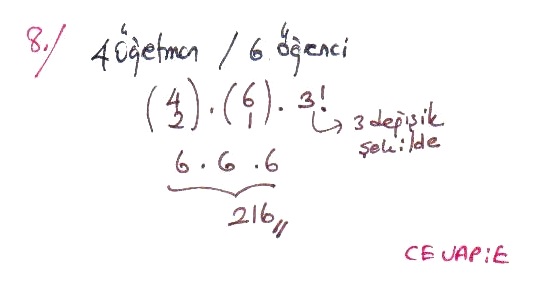 8./ 4 öğetmen / 6 öğenci
(4 2) . (6 1) . 3!
↳ 3 değişik
şekilde
6 . 6 . 6
216//
CEVAP:E